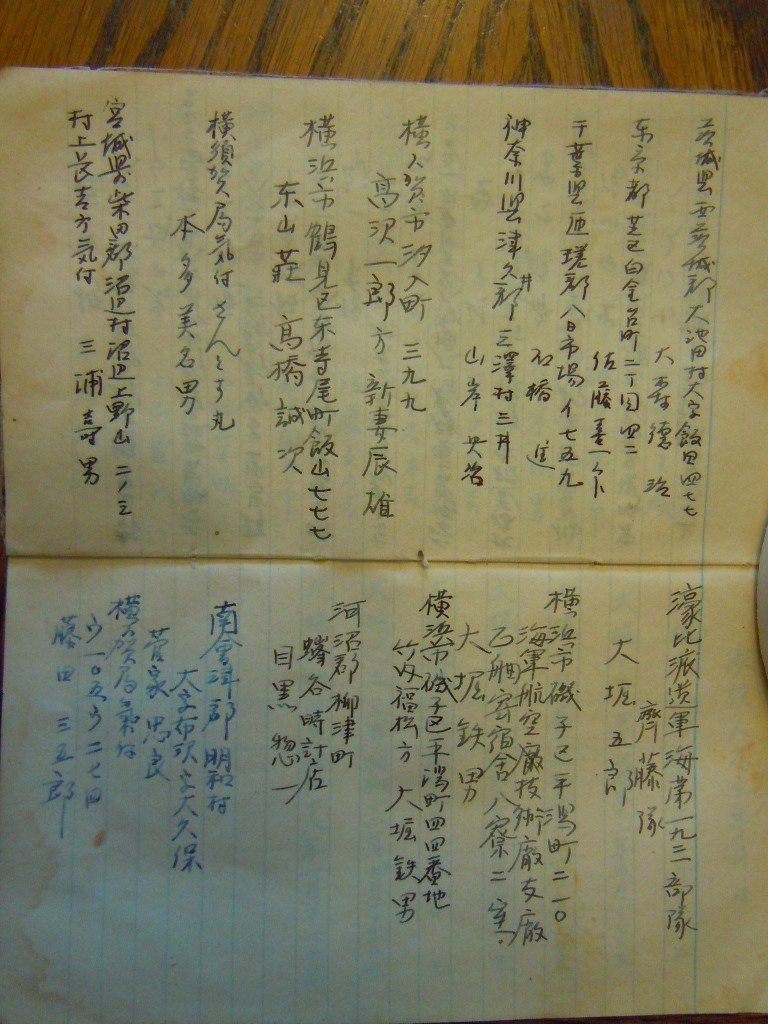 茨城県西茨城郡大池田村大字飯田四七七
大森徳
东京都芝区白金台町二丁目四二
佐藤喜一
千葉県匝瑳郡八日市場イ七五九
石橋進
神奈川県津久井郡三澤村三井
山岸
横ス賀市汐入町 三九九
高沢一郎方 新妻辰雄
横浜市鶴見区东寺尾町飯山七七七
东山莊 高橋誠次
横須賀局気付 さんとす丸
本多美名男
宮城県柴田郡沼辺村沼辺上野山二ノ三
村上長吉方気付 三浦寿男
濠北派遣軍海第一九三一部隊
齊藤隊
大堀五郎
横浜市磯子区平潟町二一〇
海軍航空廠技術廠支廠
乙舶寄宿舎八寮二室
大堀鉄男
横浜市磯子区平潟町四四番地
竹内福松方 大堀鉄男
河沼郡柳津町
時計店
目黒惣一
南會津郡明和村
大字布沢字大久保
菅家忠良
横ス賀局気付
ウ一〇五ウ二七四
藤田三五郎